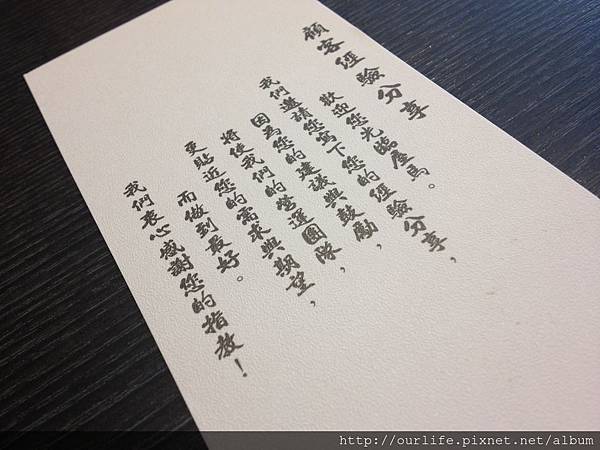 顧客經驗分享
歡迎您光臨屋馬。
我們邀請您寫下您的經驗分享，
因為您的建議與鼓勵，
將使我們的營運團隊，
更貼近您的需求與期望，
而做到最好。
我們衷心感謝您的指教！
http://ourlife.pixnet.net/album